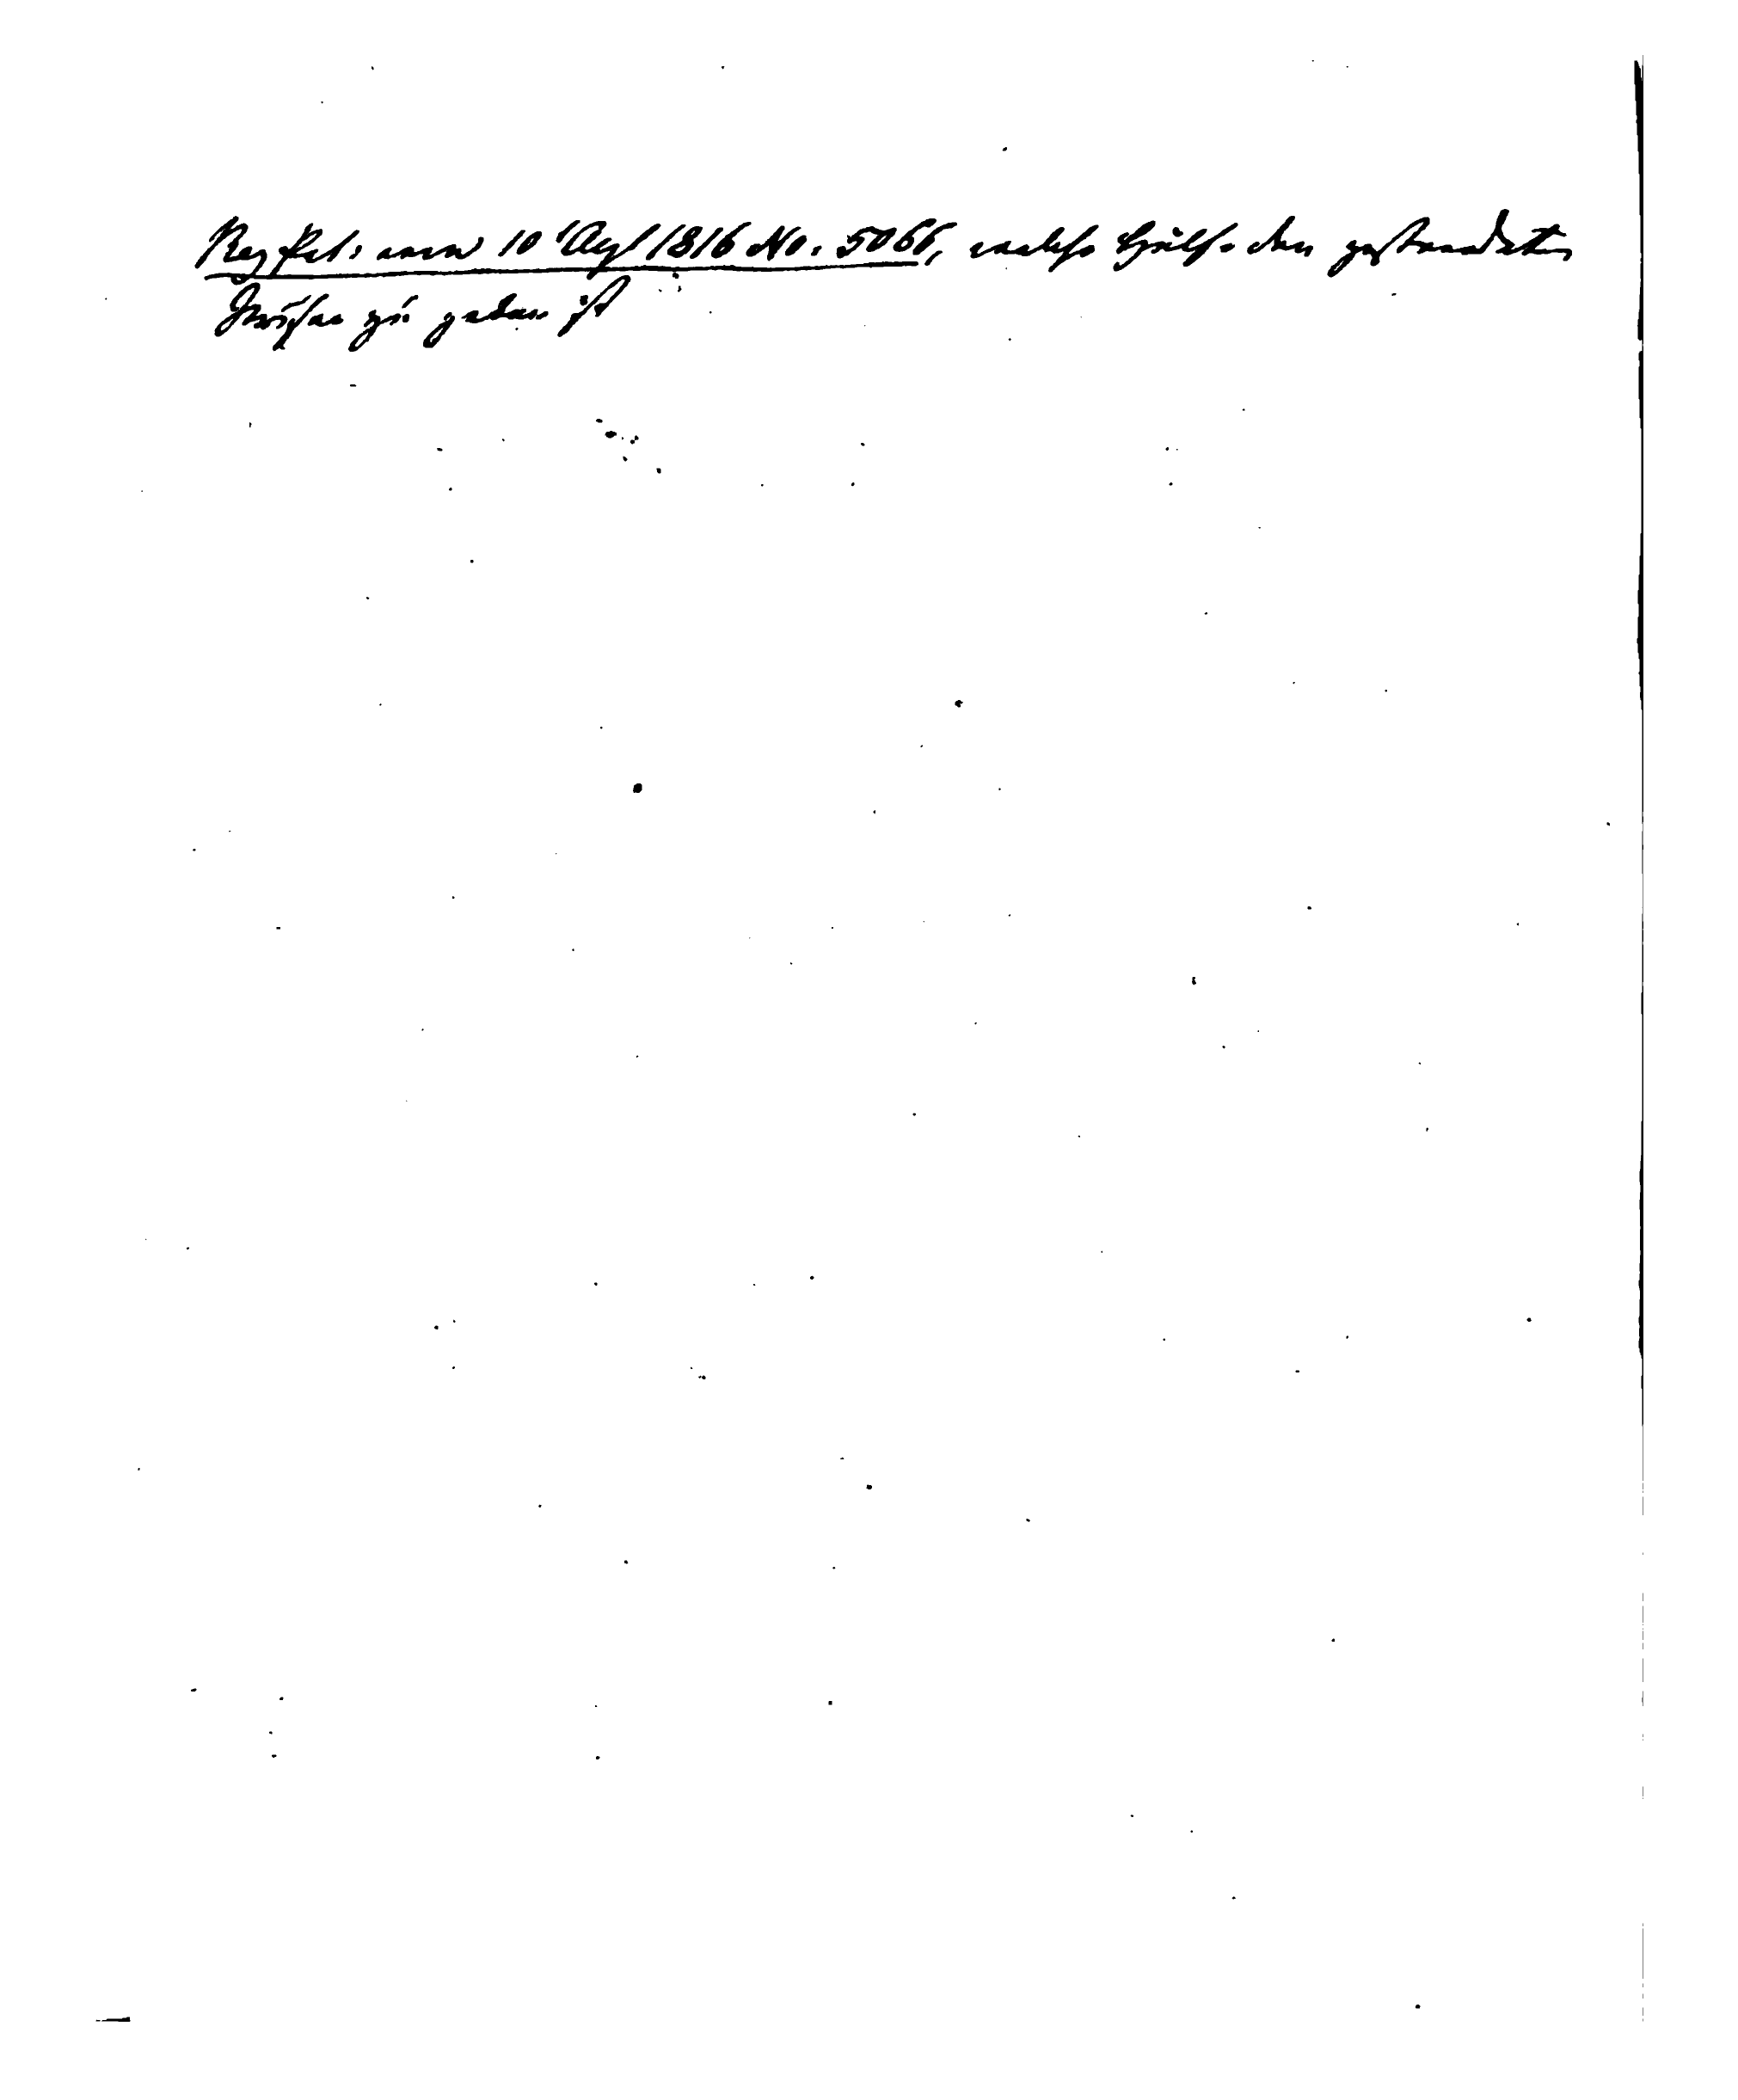 Reg Rel: vom 10 Aug 1816 No. 5066, welche Hülfe den gestrandeten
zu geben ist